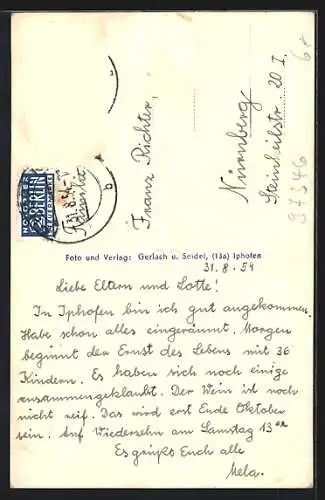 Franz Richter,
Nürnberg
Steinheilstr. 20 I.
97346
68
NOTOPFER
2 BERLIN
STEUERMARKE
31.8.54
b
Foto und Verlag: Gerlach u. Seidel, (13a) Iphofen
31.8.54
Liebe Eltern und Lotte!
In Iphofen bin ich gut angekommen.
Habe schon alles eingeräumt. Morgen
beginnt der Ernst des Lebens mit 36
Kindern. Es haben sich noch einige
zusammengeklaubt. Der Wein ist noch
nicht reif. Das wird erst Ende Oktober
sein. Auf Wiedersehn am Samstag 13
Es grüßt Euch alle
Mela.